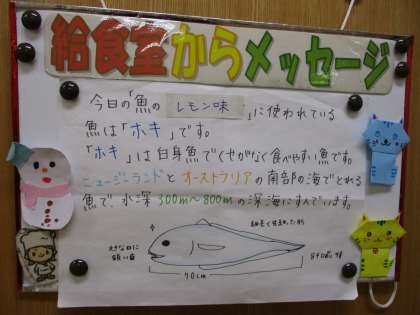 給食室からメッセージ
今日の「魚の レモン味 」に使われている
魚は「ホキ」です。
「ホキ」は白身魚でくせがなく食べやすい魚です。
ニュージーランドとオーストラリアの南部の海でとれる
魚で、水深300m〜800mの深海にすんでいます。
大きな口に
鋭い歯
70cm